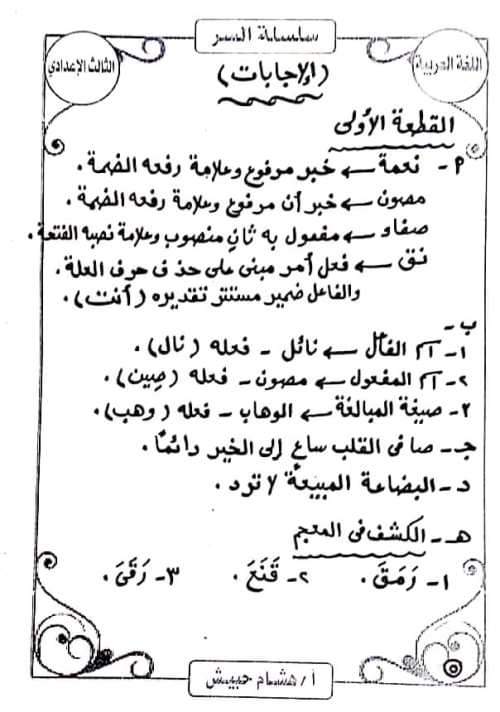 سلسلة السر
اللغة العربية
الثالث الإعدادي
(الإجابات)
القطعة الأولى
أ - نعمة ← خبر مرفوع وعلامة رفعه الضمة .
مصون ← خبر أن مرفوع وعلامة رفعه الضمة .
صفاء ← مفعول به ثانٍ منصوب وعلامة نصبه الفتحة .
نقِ ← فعل أمر مبنى على حذف حرف العلة .
والفاعل ضمير مستتر تقديره (أنت) .
ب -
١- اسم الفاعل ← نائل - فعله (نال) .
٢- اسم المفعول ← مصون - فعله (صِين) .
٣- صيغة المبالغة ← الوهاب - فعله (وهب) .
جـ - صافى القلب ساعٍ إلى الخير دائمًا .
د - البضاعة المبيعة لا ترد .
هـ - الكشف فى المعجم
١- رَمَقَ . ٢- قَنَعَ . ٣- رَقَىَ .
أ / هشام حبيش